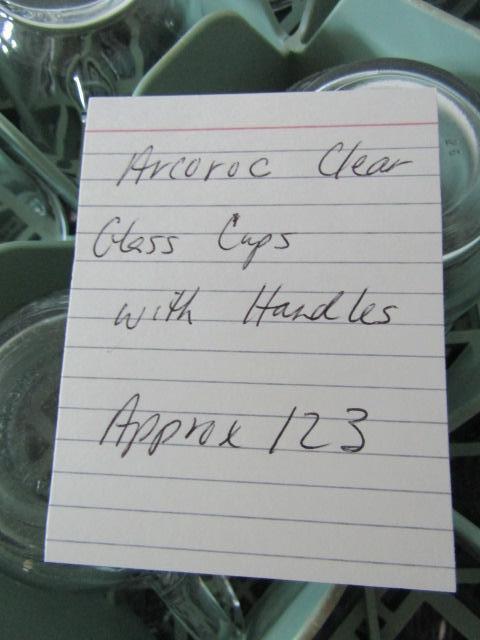 Arcoroc Clear
Glass Cups
with Handles
Approx 123